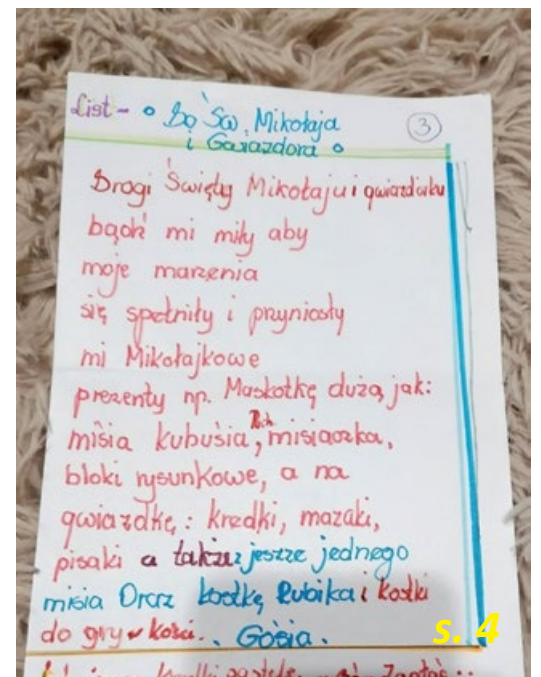 List - o Do Św. Mikołaja
i Gwiazdora o
3
Drogi Święty Mikołaju i gwiazdorku
bądź mi miły aby
moje marzenia
się spełniły i przyniosły
mi Mikołajkowe
prezenty np. Maskotkę dużą jak:
misia kubusia, Puch misiaczka,
bloki rysunkowe, a na
gwiazdkę: kredki, mazaki,
pisaki a także jeszze jednego
misia Oraz kostkę Rubika i kostki
do gry w kości. Gosia.
s. 4